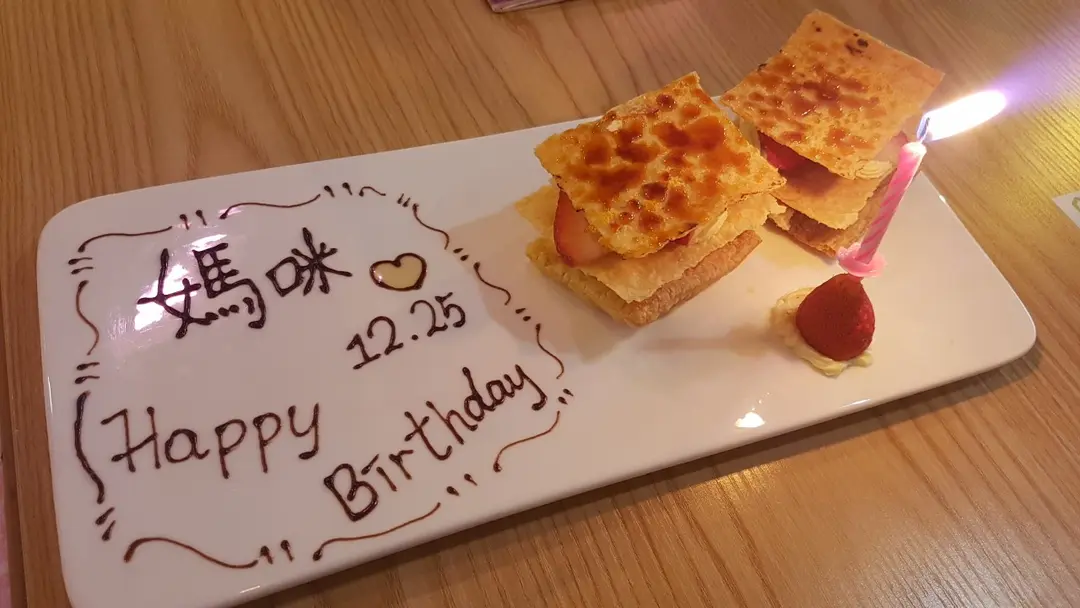 媽咪
12.25
Happy
Birthday